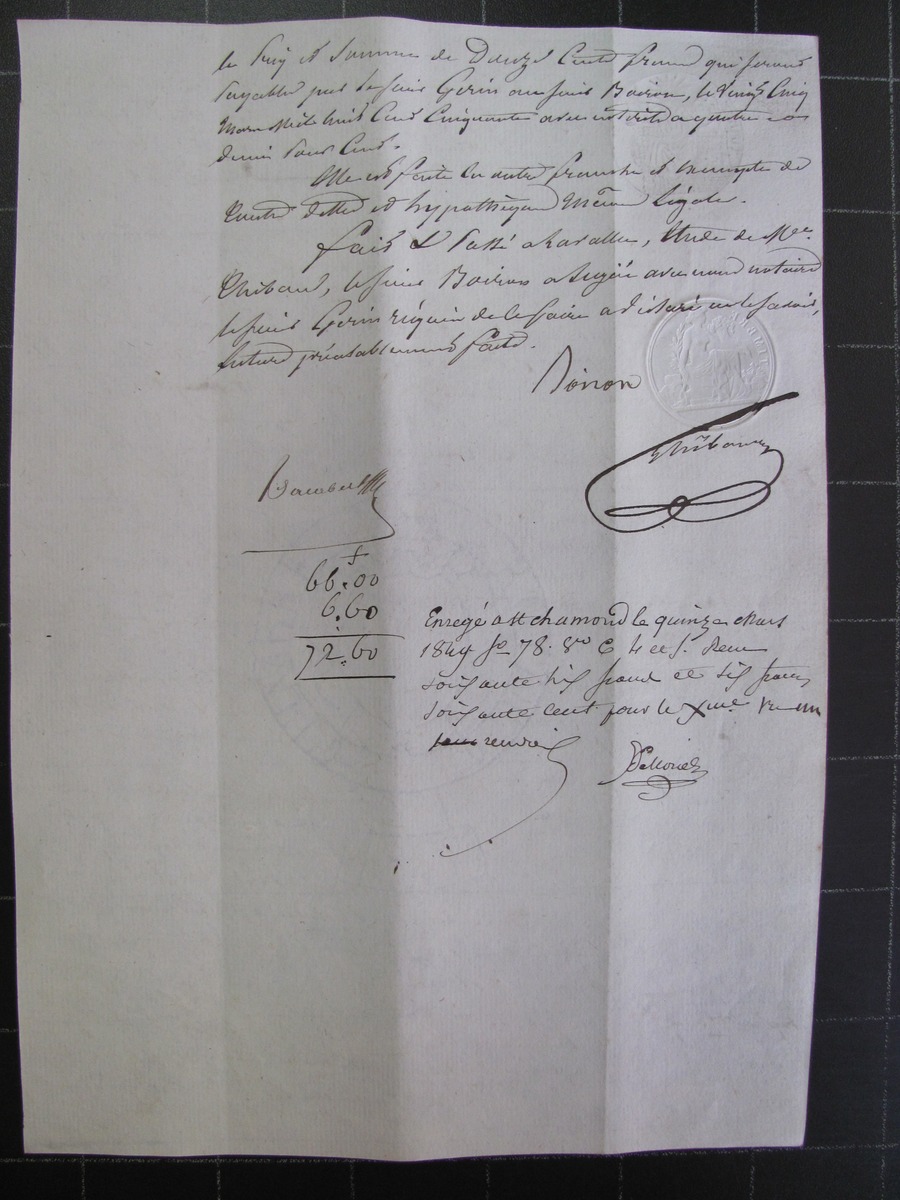 le prix et somme de Douze Cents francs qui seront
payable par le sieur Gerin au sieur Boiron, le Vingt Cinq
Mars Mil huit Cent Cinquante avec intérêt a quatre et
demi pour Cent.
Elle est faite en outre franche et exempte de
toutes dettes et hypothèques même légale.
fait & Passé a , Etude de Me.
Thibaud, le sieur Boiron a signé avec nous notaire
le sieur Gerin réquis de le faire a déclaré ne le savoir,
lecture préalablement faite.
Boiron
Thibaud
66.00 f
6.60
72.60
Enregé a St chamond le quinze Mars
1849 fo 78. Vo C 4 et 5. Reçu
soixante six francs et six francs
soixante cent pour le Xme